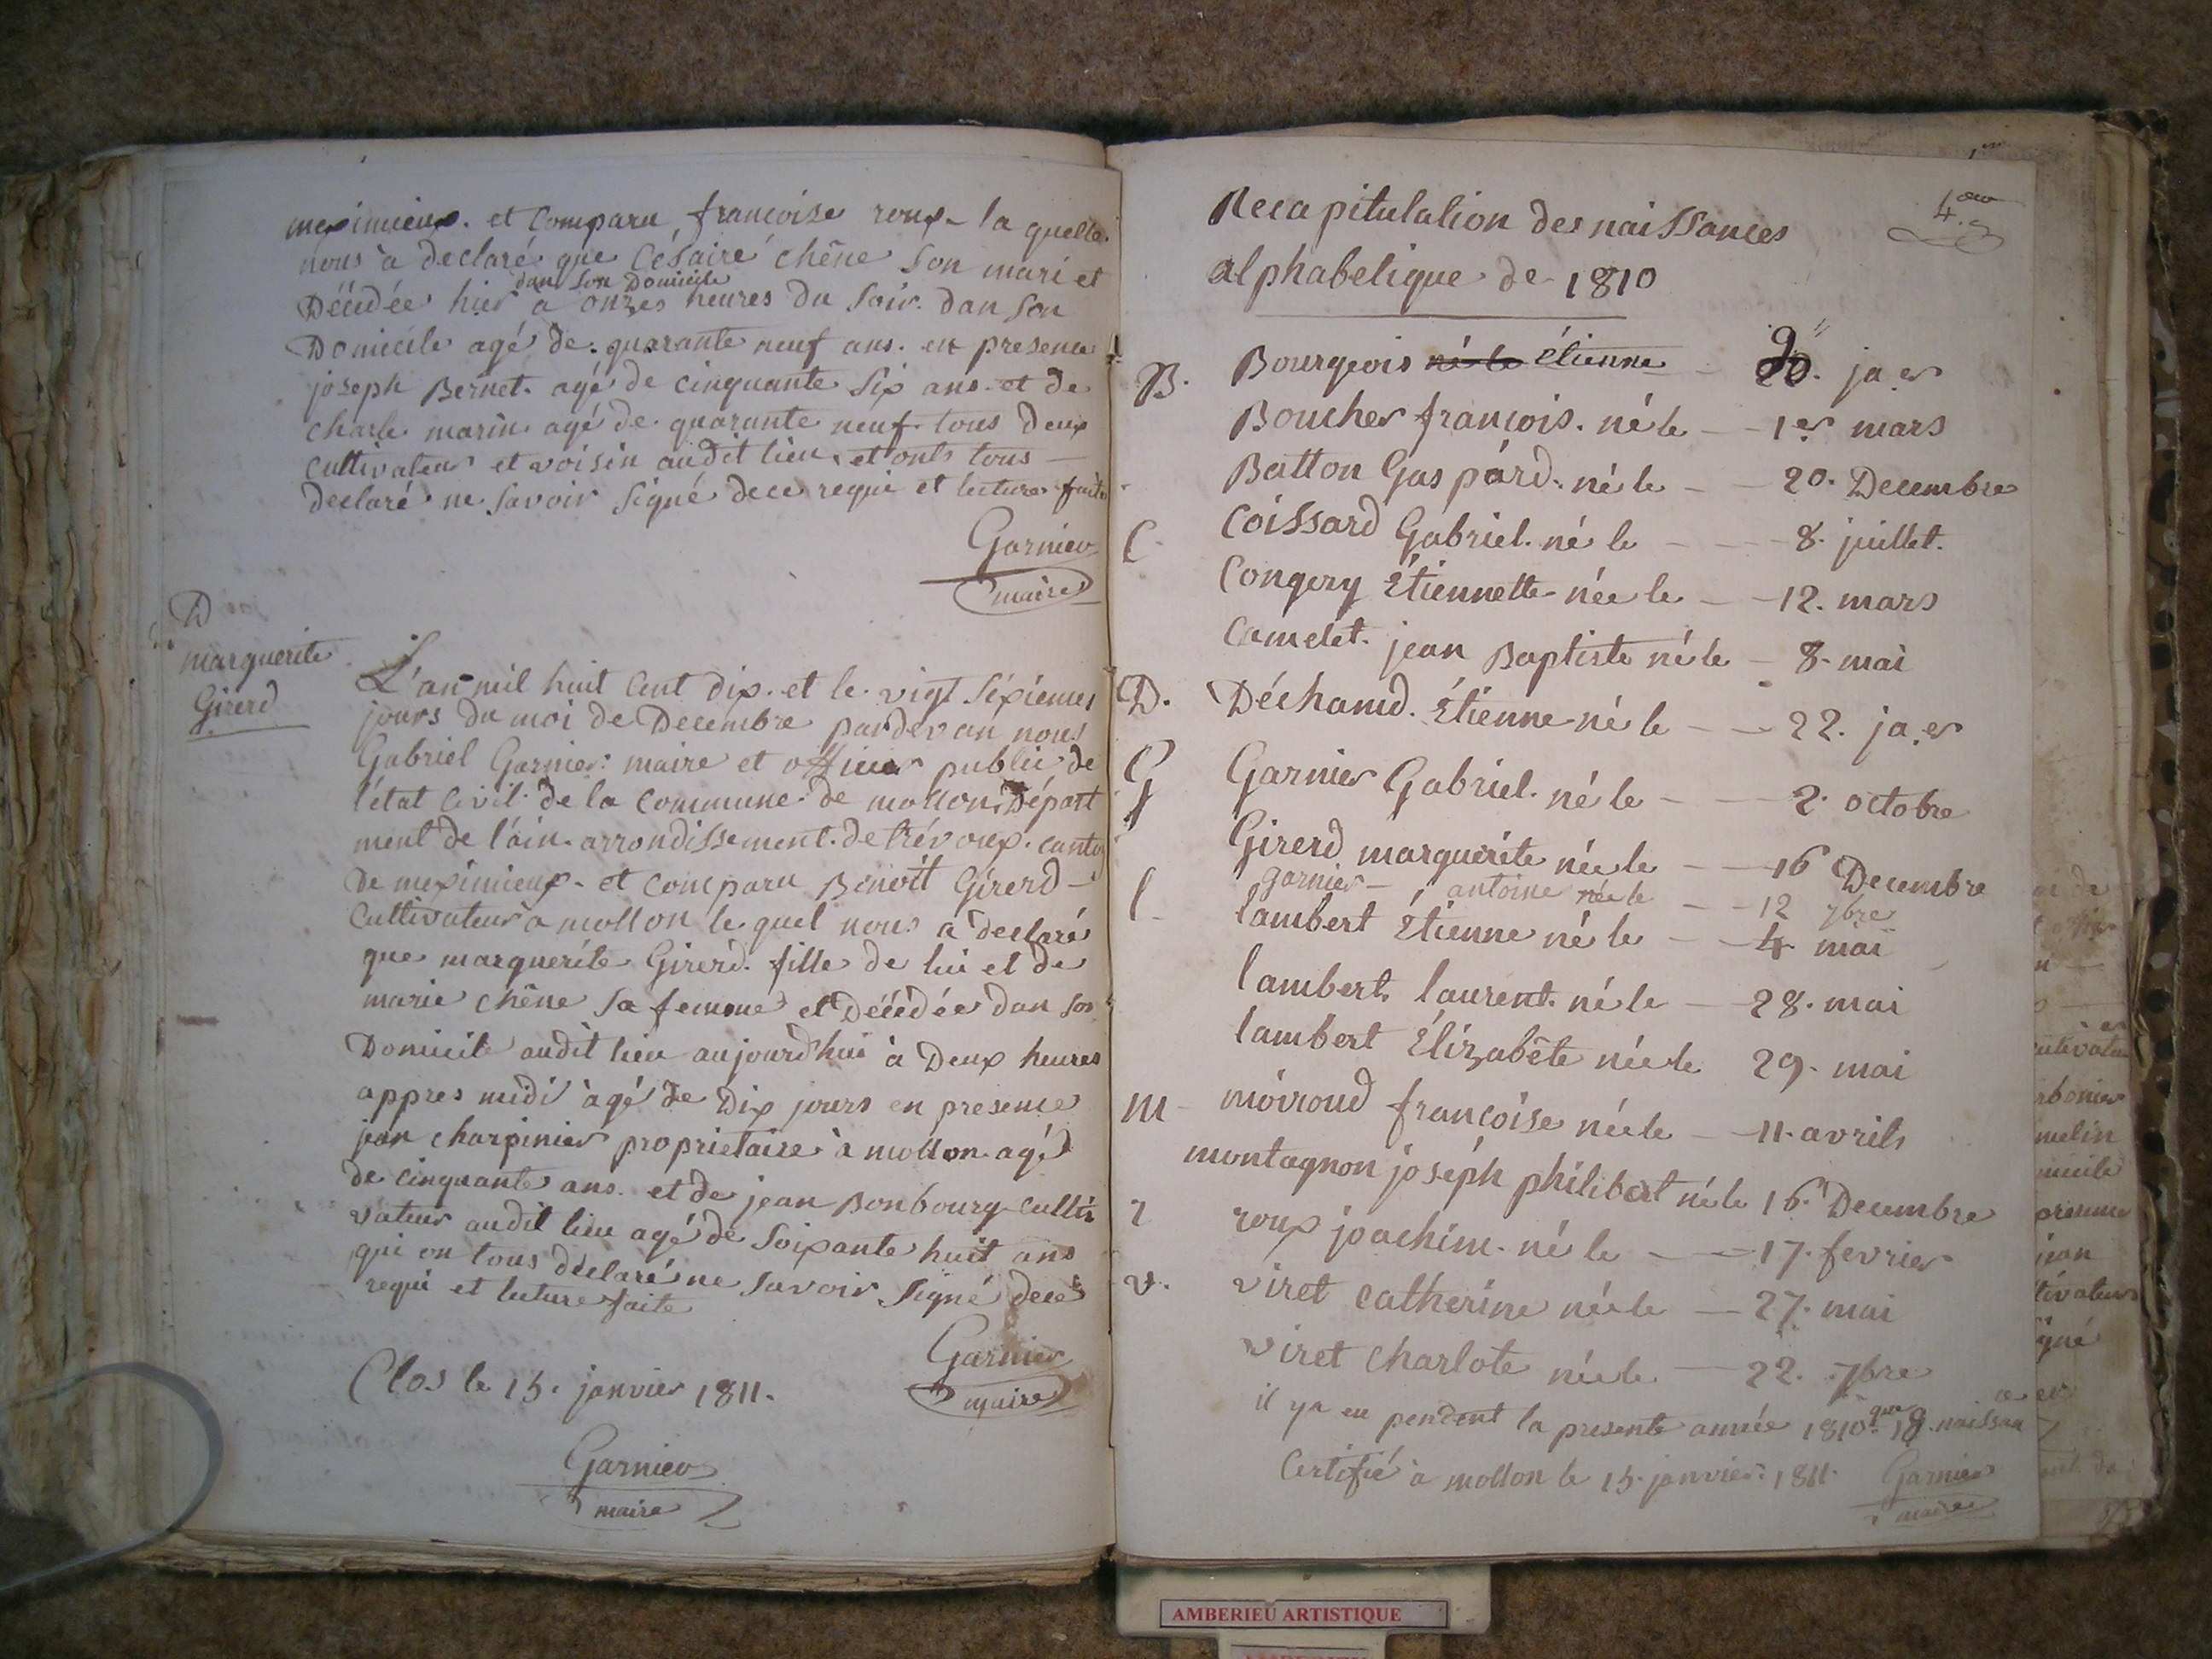 meximieux. et Comparu françoise roux la quelle
nous à declaré que Césaire chêne Son mari et
dan Son Domicile
Décédée hier à onzes heures du Soir. dan Son
Domicile agé de. quarante neuf ans. en presence
joseph Bernet. agé de cinquante Six ans. et de
charle marin. agé de quarante neuf. tous Deux
Cultivateur et voisin audit lieu. et onts tous
declaré ne Savoir Signé de ce requi et lecture faite
Garnier
maire
D
marguerite
Girerd
L'an mil huit Cent dix. et le. vigt Sixiemes
jours du moi de Decembre pardevan nous
Gabriel Garnier. maire et officier public de
l'état Civil de la Commune de mollon, Départ
ment de l'ain. arrondissement. de trévoux. canton
De meximieux. et Comparu Bénoît Girerd
Cultivateur à mollon le quel nous à declaré
que marguerite Girerd. fille de lui et de
marie chêne Sa femme et Décédée dan Son
Domicile audit lieu aujourdhui à Deux heures
appres midi àgé de Dix jours en presence
jean charpinier proprietaire à mollon. agé
de cinquante ans. et de jean Bonbourg Culti
vateur audit lieu agé de Soixante huit ans
qui on tous declaré ne Savoir Signé de ce
requi et lecture faite
Garnier
maire
Clos le 15. janvier 1811.
Garnier
maire
4.
Recapitulation des naissances
alphabetique de 1810
B. Bourgeois né le étienne 9 20. ja.er
Boucher françois. né le 1er mars
Batton Gaspard. né le 20. Decembre
C Coissard Gabriel. né le 8. juillet.
Congery Étiennette née le 12. mars
Camelet. jean Baptiste né le 8. mai
D. Déchamd. Étienne né le 22. ja.er
G Garnier Gabriel. né le 2. octobre
Girerd marguerite née le 16 Decembre
garnier antoine née le 12 7bre
l lambert Étienne né le 4 mai
lambert. laurent. né le 28. mai
lambert Élizabête née le 29. mai
m moiroud françoise née le 11. avrils
montagnon joséph philibert né le 16. Decembre
r roux joachim. né le 17. fevrier
v. viret catherine née le 27. mai
viret charlote née le 22. 7bre
il y a eu pendent la presente année 1810. que 18. naissan
ce
Certifié à mollon le 15. janvier 1811. Garnier
maire
AMBERIEU ARTISTIQUE